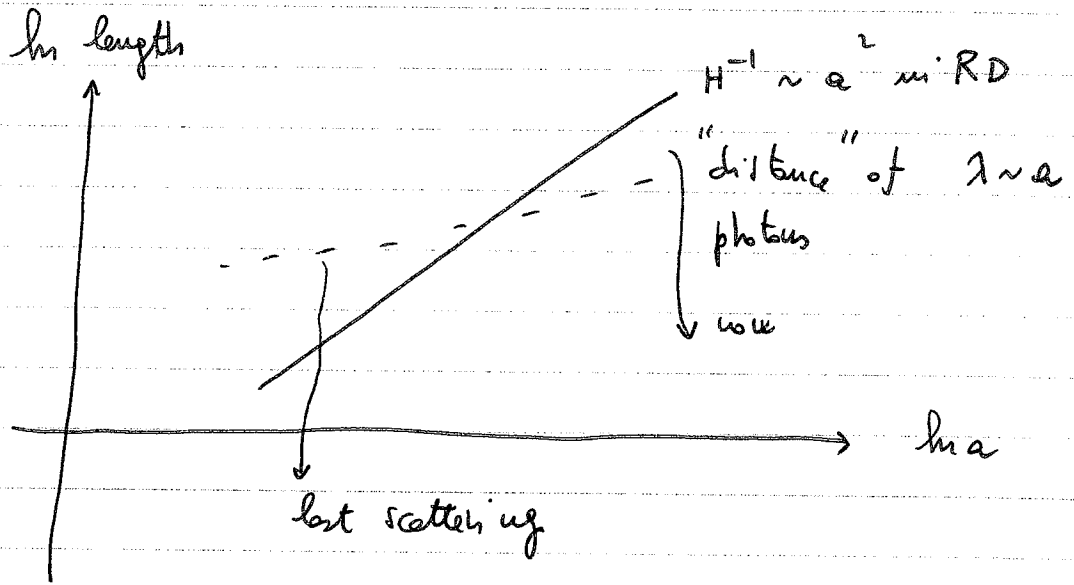 ln length
H⁻¹ ~ a² in RD
"distance" of λ~a
photons
now
ln a
last scattering